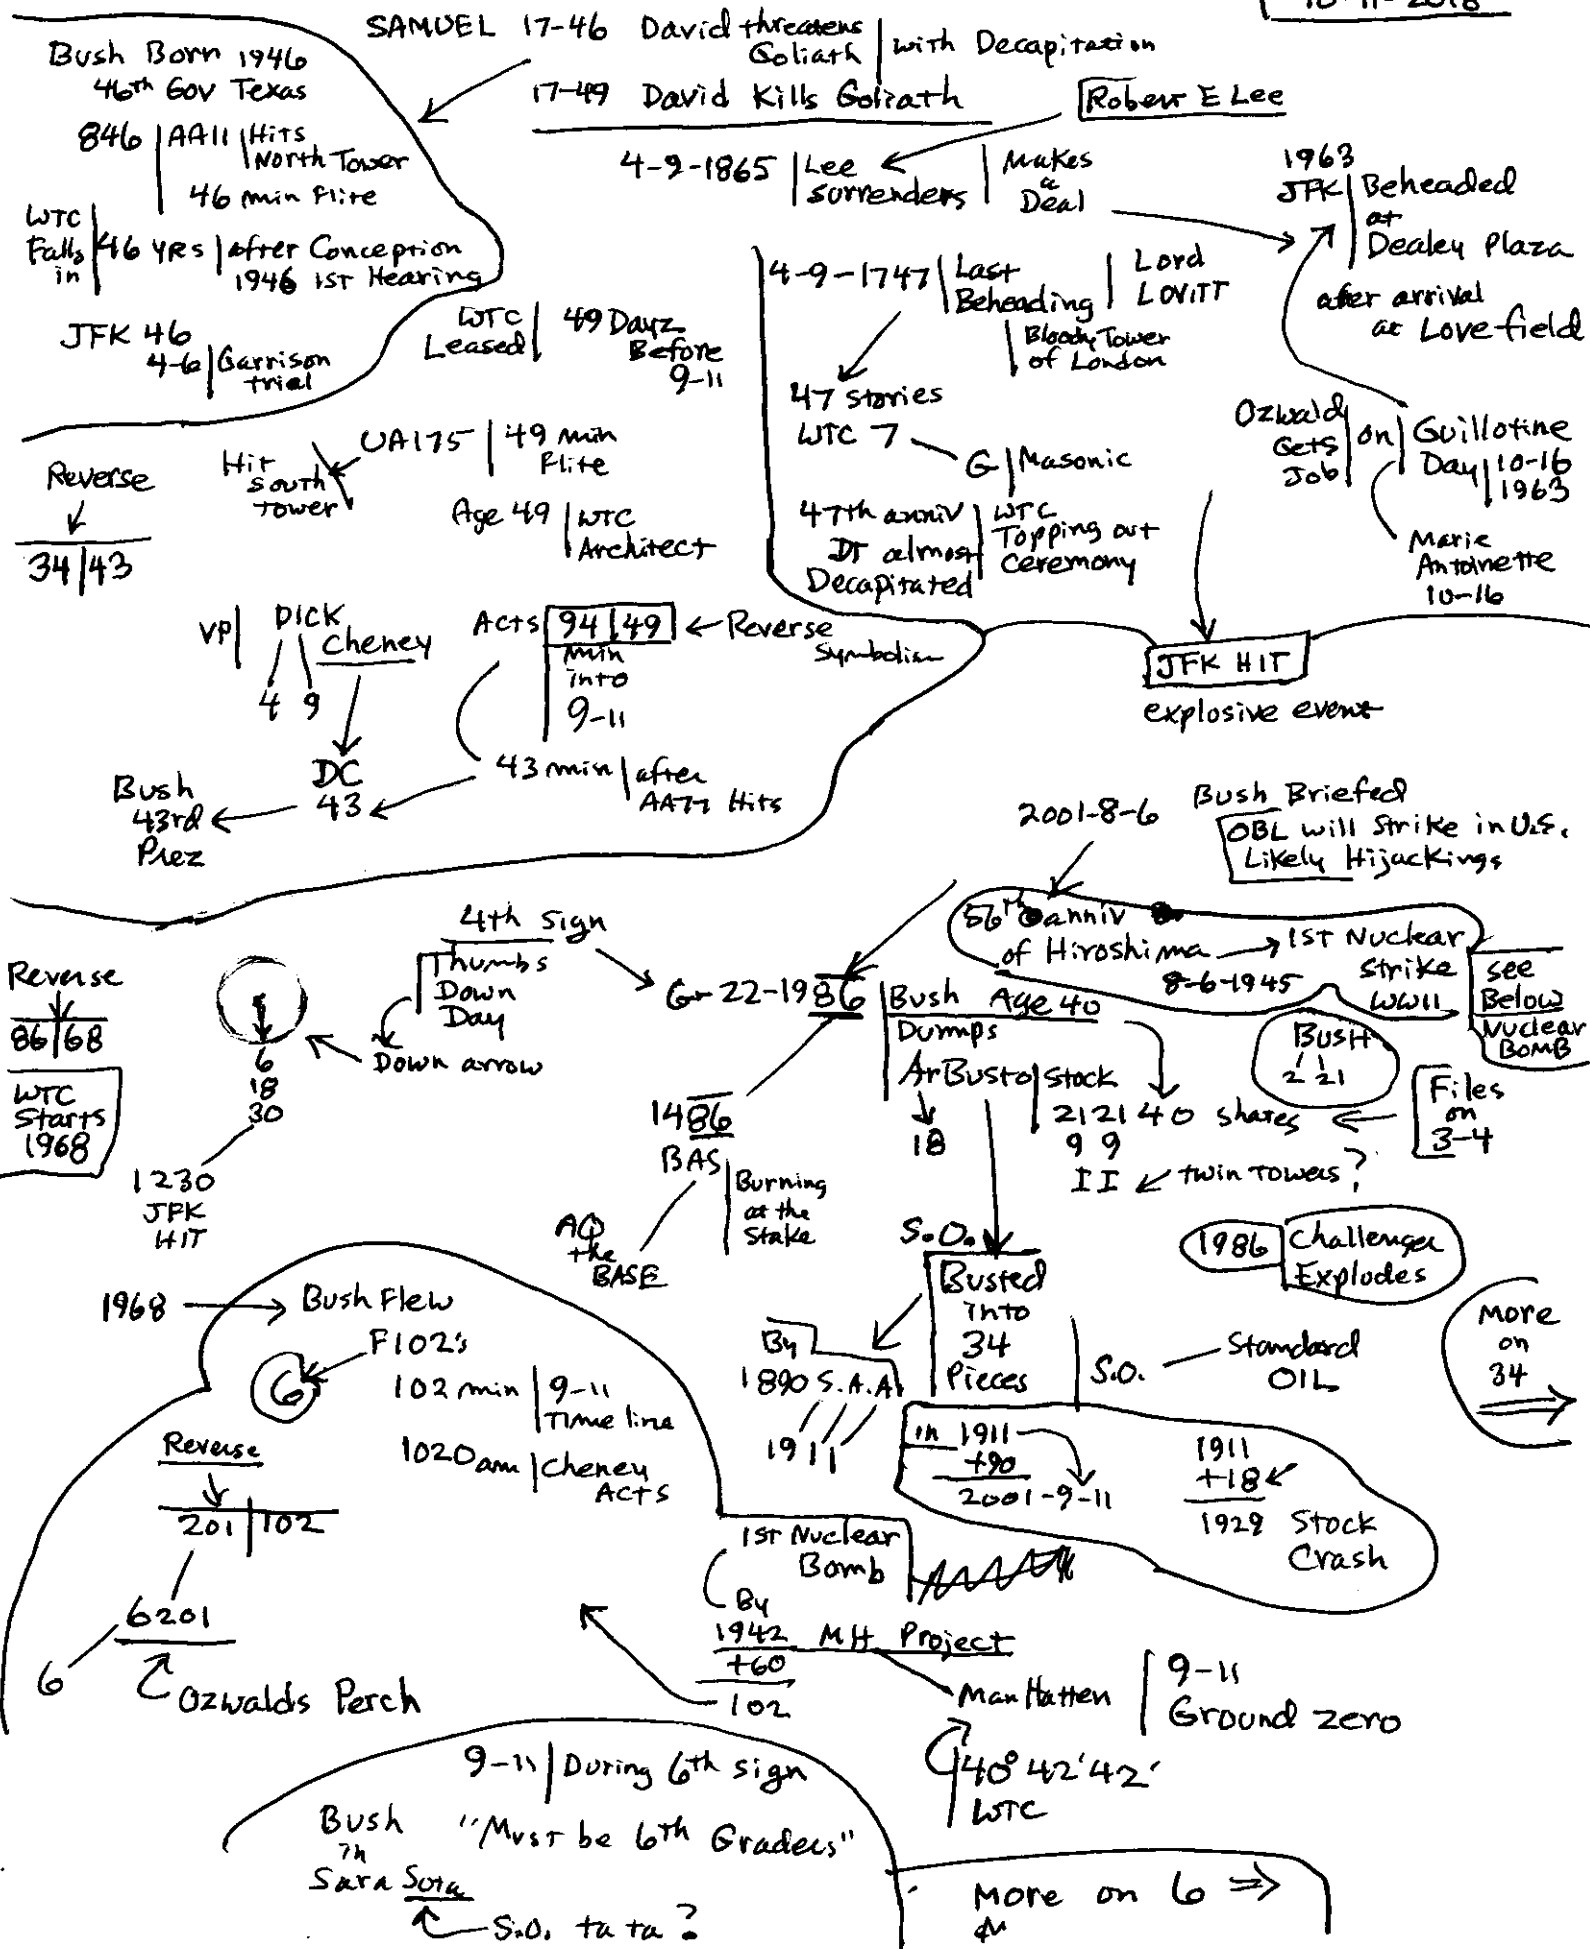 10-11-2018
SAMUEL 17-46 David threatens Goliath with Decapitation
17-49 David Kills Goliath
Robert E Lee
Bush Born 1946
46th Gov Texas
846 AA11 Hits
North Tower
46 min Flite
WTC
Falls
in
46 YRS after Conception
1946 1ST Hearing
JFK 46
4-6 Garrison
trial
4-9-1865 Lee
surrenders
Makes
a
Deal
1963
JFK Beheaded
at
Dealey Plaza
after arrival
at Lovefield
WTC
Leased
49 Dayz
Before
9-11
4-9-1747 Last
Beheading
Lord
LOVITT
Bloody Tower
of London
47 stories
WTC 7
G Masonic
47th anniv
DT almost
Decapitated
WTC
Topping out
Ceremony
Ozwald
Gets
Job
on
Guillotine
Day 10-16
1963
Marie
Antoinette
10-16
Reverse
34 43
Hit
South
Tower
UA175 49 min
Flite
Age 49 WTC
Architect
VP DICK
Cheney
4 9
DC
43
Bush
43rd
Prez
Acts 94 49 Reverse
Symbolism
min
into
9-11
43 min after
AA77 Hits
JFK HIT
explosive event
2001-8-6 Bush Briefed
OBL will strike in U.S.
Likely Hijackings
56th anniv
of Hiroshima
8-6-1945
1ST Nuclear
Strike
WWII
see
Below
Nuclear
BOMB
4th sign
Thumbs
Down
Day
Down arrow
Reverse
86 68
WTC
Starts
1968
6
18
30
1230
JFK
HIT
6-22-1986 Bush Age 40
Dumps
ArBusto Stock
18
212140 shares
9 9
I I twin Towers?
BUSH
2 21
Files
on
3-4
1486
BAS Burning
at the
Stake
AQ
the
BASE
S.O.
Busted
into
34
Pieces
1986 Challenger
Explodes
More
on
34
S.O. Standard
OIL
By
1890 S.A.A
1911
in 1911
+90
2001-9-11
1911
+18
1929 Stock
Crash
1968 Bush Flew
F102's
6
102 min 9-11
Time line
1020am Cheney
ACTS
Reverse
201 102
6201
6
Ozwalds Perch
1ST Nuclear
Bomb
By
1942 MH Project
+60
102
ManHatten
9-11
Ground zero
40° 42' 42'
WTC
9-11 During 6th sign
Bush
in
SaraSota
"Must be 6th Graders"
S.O. ta ta?
More on 6